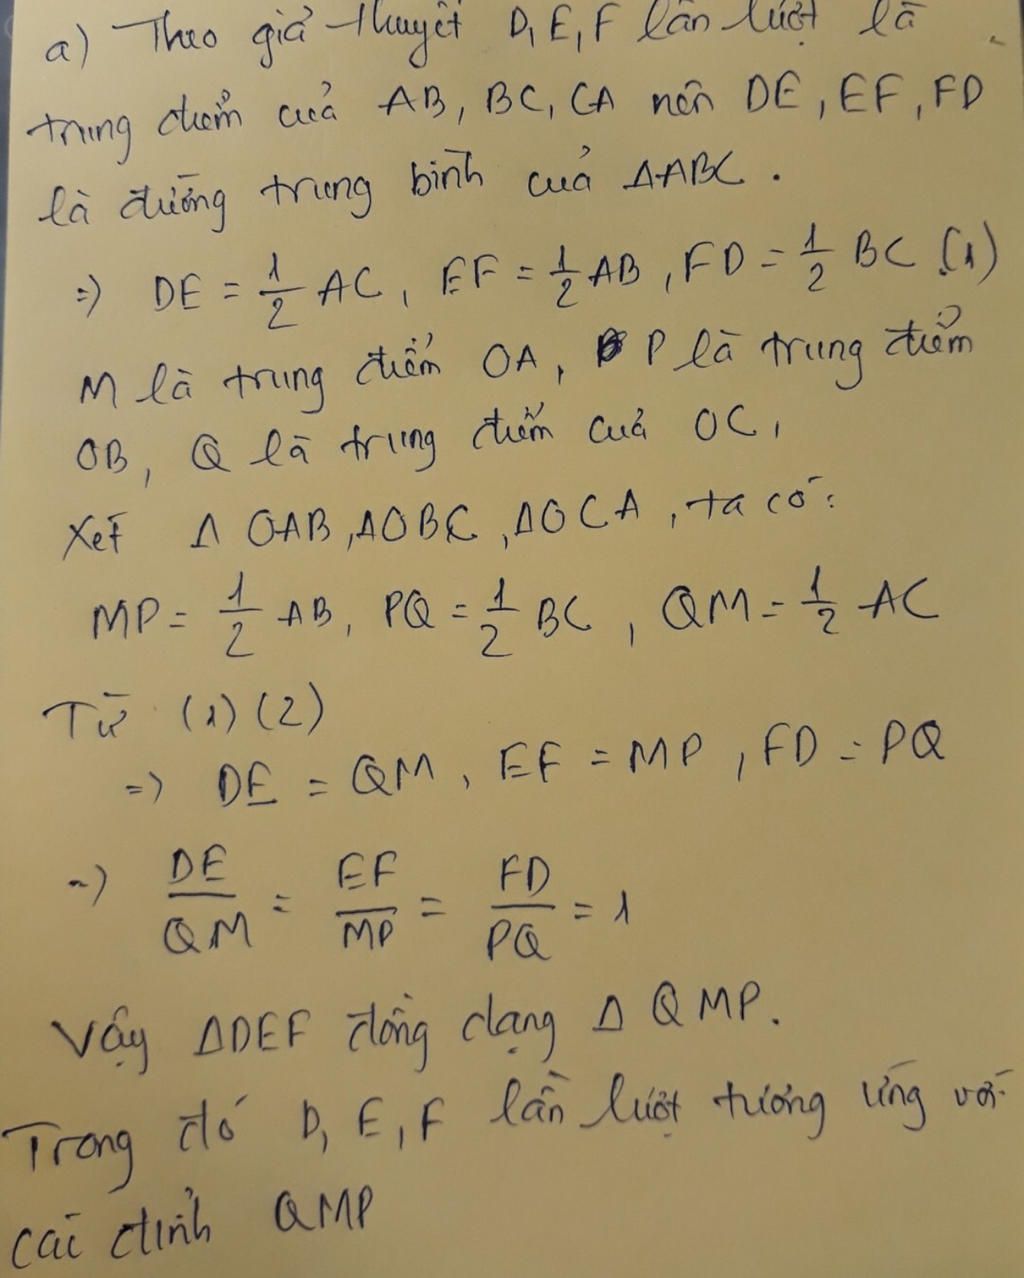 a) Theo giả thuyết D, E, F lần lượt là
trung điểm của AB, BC, CA nên DE, EF, FD
là đường trung bình của ΔABC.
=> DE = 1/2 AC, EF = 1/2 AB, FD = 1/2 BC (1)
M là trung điểm OA, P là trung điểm
OB, Q là trung điểm của OC,
Xét Δ OAB, ΔOBC, ΔOCA, ta có:
MP = 1/2 AB, PQ = 1/2 BC, QM = 1/2 AC
Từ (1) (2)
=> DE = QM, EF = MP, FD = PQ
=> DE/QM = EF/MP = FD/PQ = 1
Vậy ΔDEF đồng dạng Δ QMP.
Trong đó D, E, F lần lượt tương ứng với
các đỉnh QMP